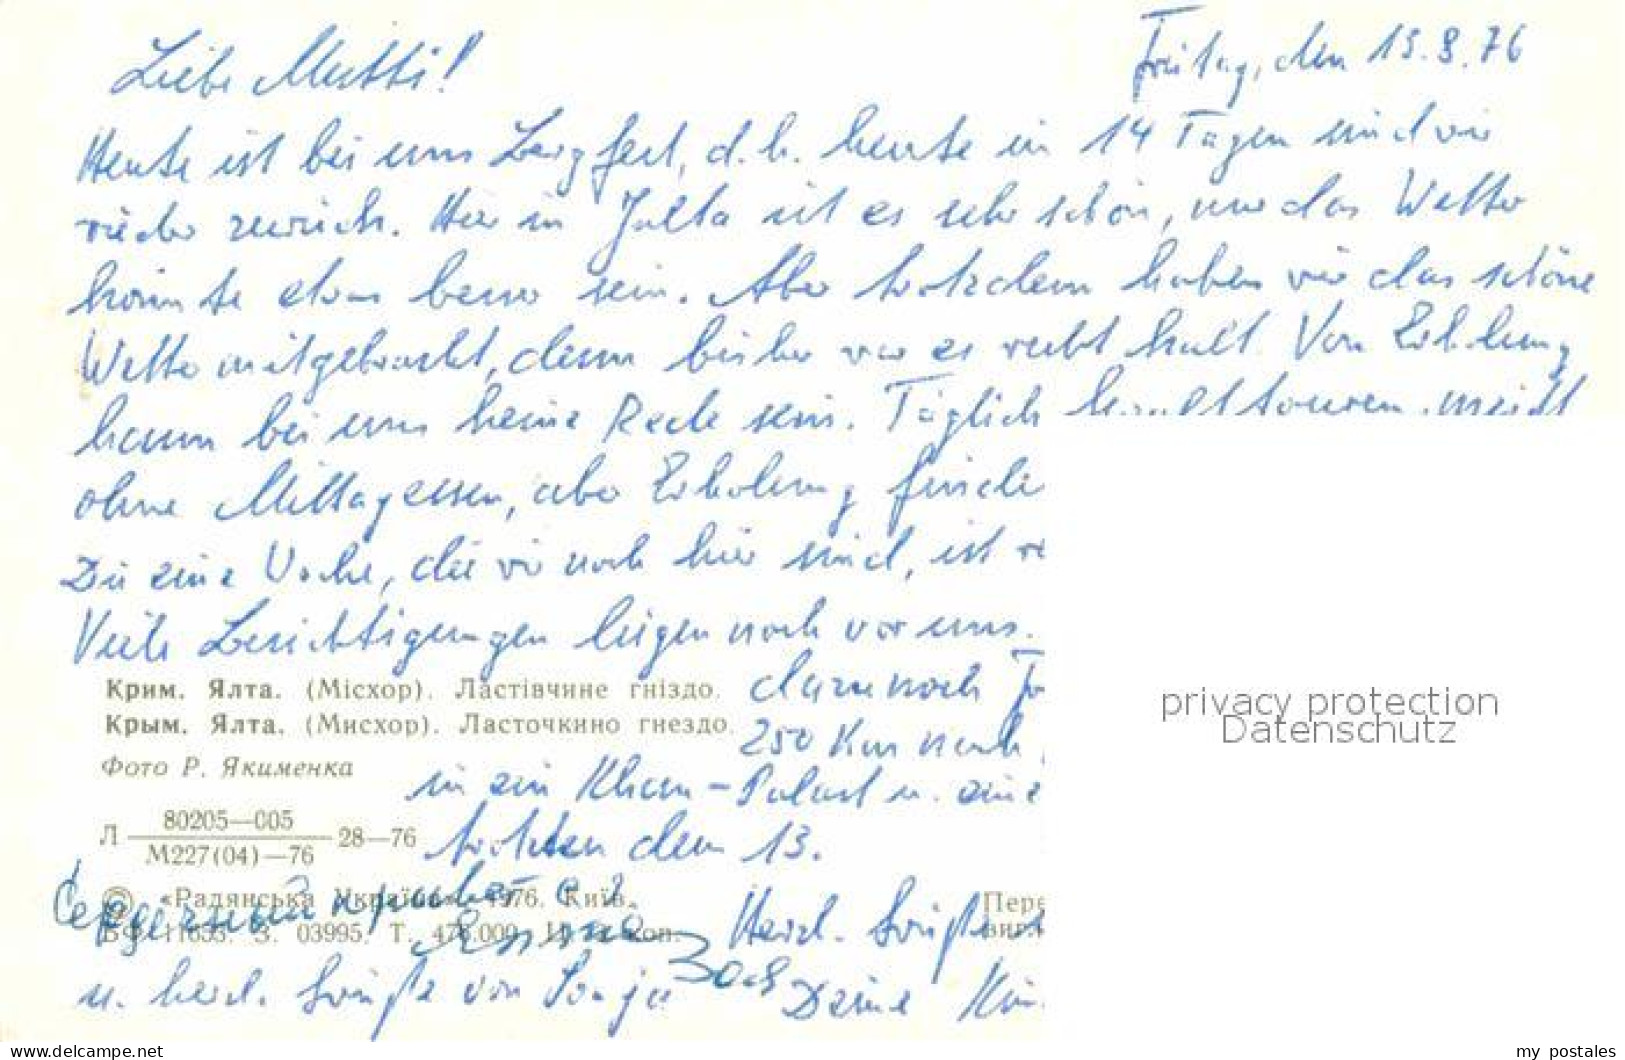 Liebe Mutti!
Freitag, den 13.8.76
Heute ist bei uns Bergfest, d.h. heute in 14 Tagen sind wir
wieder zurück. Hier in Jalta ist es sehr schön, nur das Wetter
könnte etwas besser sein. Aber trotzdem haben wir das schöne
Wetter mitgebracht, denn bisher war es recht kalt. Von Erholung
kann bei uns keine Rede sein. Täglich
ohne Mittagessen, aber Erholung finde
Die eine Woche, die wir noch hier sind, ist
Viele Besichtigungen liegen noch vor uns.
Крим. Ялта. (Місхор). Ластівчине гніздо.
Крым. Ялта. (Мисхор). Ласточкино гнездо.
Фото Р. Якименка
dazu noch
250 Km nach
in ein Khan-Palast u. eine
trotzdem dem 13.
Л 80205—005 28—76
М227(04)—76
© «Радянська Україна». 1976. Київ.
БФ 11655. З. 03995. Т. 475.000.
Сердечный привет
Пере
виг
Herzl. Grüße
u. herzl. Grüße von Sonja
Deine
privacy protection
Datenschutz
www.delcampe.net
my_postales